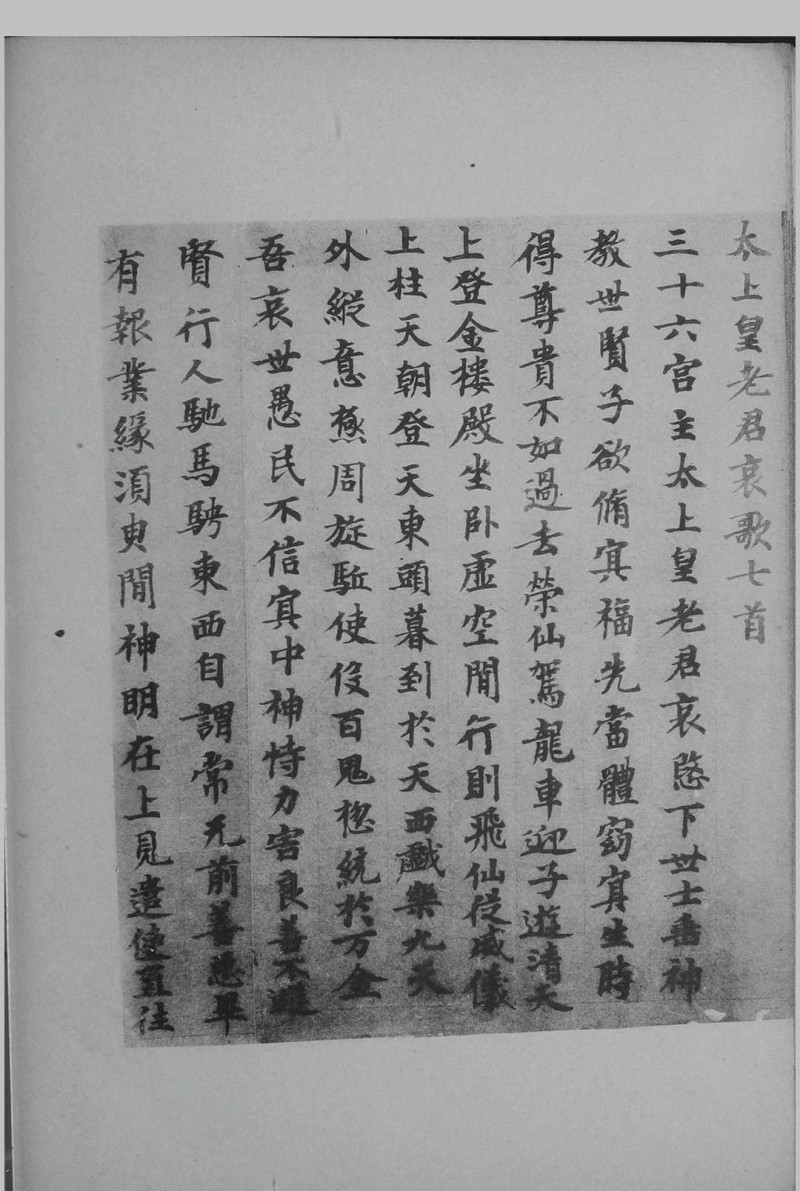 太上皇老君哀歌七首
三十六宮主太上皇老君哀愍下世士垂神
教世賢子欲脩㝠福先當體窈㝠生時
得尊貴不如過去榮仙駕龍車迎子遊清天
上登金樓殿坐卧虛空間行則飛仙從威儀
上柱天朝登天東頭暮到於天西戲樂九天
外縱意極周旋駈使伇百鬼揔統於万全
吾哀世愚民不信㝠中神恃力害良善不避
賢行人馳馬騁東西自謂常无前善惡畢
有報業緣須臾間神明在上見遣使直往